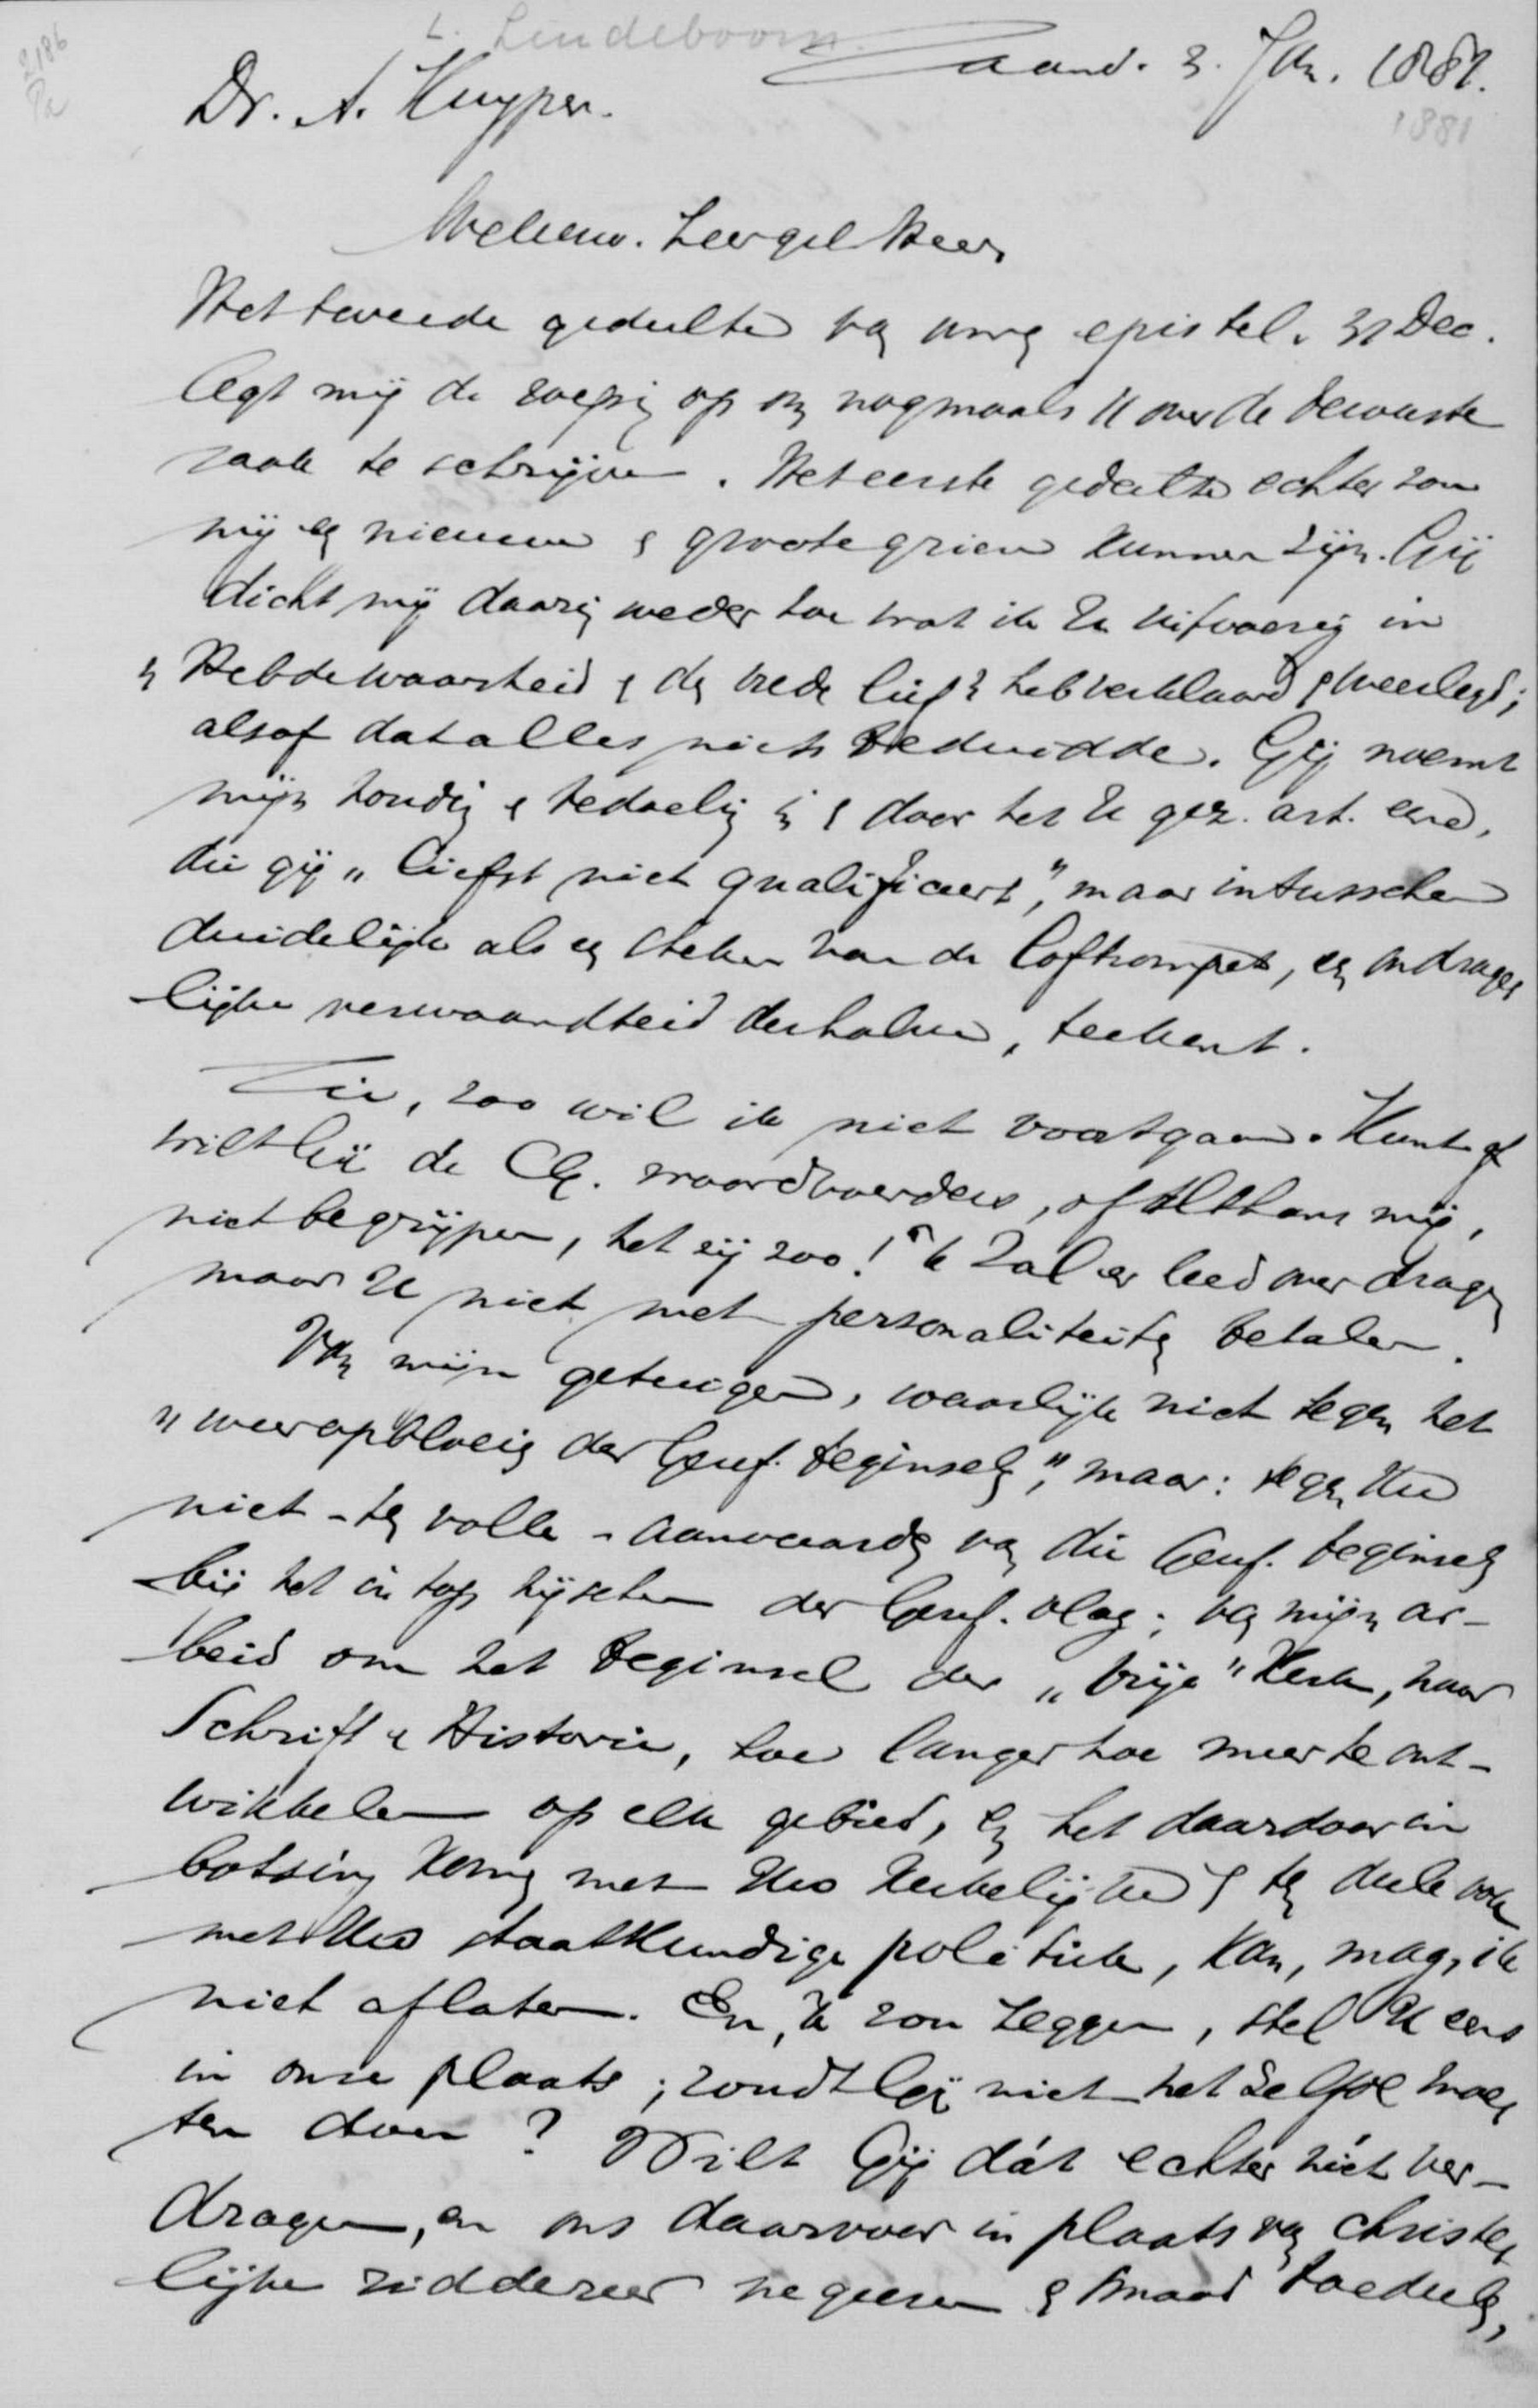 L. Lindeboom.
2186
Zaand. 3. Jan. 1881.
1881
Dr. A. Kuyper.
Weleerw. Zeergel. Heer,
Het tweede gedeelte van uwen epistel. 31 Dec.
legt mij de roeping op om nogmaals U over de bewuste
zaak te schrijven. Het eerste gedeelte echter zou
mij een nieuwe en groote grieve kunnen zijn. Gij
dicht mij daarin weder toe wat ik U uitvoerig in
„Hebt de waarheid en den vrede lief" heb verklaard en weerlegd;
alsof dat alles niets beduidde. Gij noemt
mijn houding en bedoeling in en door het U gez. art. eene,
die gij „liefst niet qualificeert", maar intusschen
duidelijk als een steken van de loftrompet, een ondrage-
lijke verwaandheid derhalve, teekent.
Zie, zoo wil ik niet voortgaan. Kunt of
wilt Gij de Chr. woordvoerders, of althans mij,
niet begrijpen, het zij zoo! Ik zal er leed over dragen
maar U niet met personaliteiten betalen.
Van mijn getuigen, waarlijk niet tegen het
„weeropbloeien der Geref. beginselen", maar: tegen Uw
niet-ten volle-aanvaarden van die Geref. beginselen
bij het in top hijschen der Geref. vlag; van mijn ar-
beid om het beginsel der „vrije" Kerk, naar
Schrift en Historie, hoe langer hoe meer te ont-
wikkelen op elk gebied, en het daardoor in
botsing komen met Uwe kerkelijke en ten deele ook
met Uwe staatkundige politiek, kan, mag, ik
niet aflaten. En, ik zou zeggen, stel U eens
in onze plaats; zoudt Gij niet hetzelfde moe-
ten doen? Wilt Gij dát echter niet ver-
dragen, en ons daarvoor in plaats van christe-
lijke ridderzeer negeeren en smaad toedeelen,